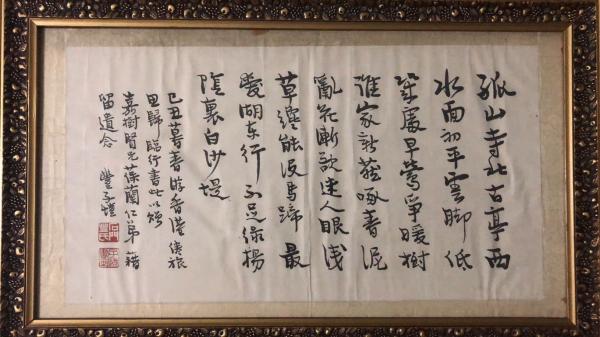 孤山寺北古亭西
水面初平雲脚低
幾處早鶯爭暖樹
誰家新燕啄春泥
亂花漸欲迷人眼淺
草纔能沒馬蹄最
愛湖東行不足綠楊
陰裏白沙堤
己丑暮春游香港倦旅
思歸臨行書此以
嘉樹賢兄葆蘭仁弟藉
留遺念 豐子愷